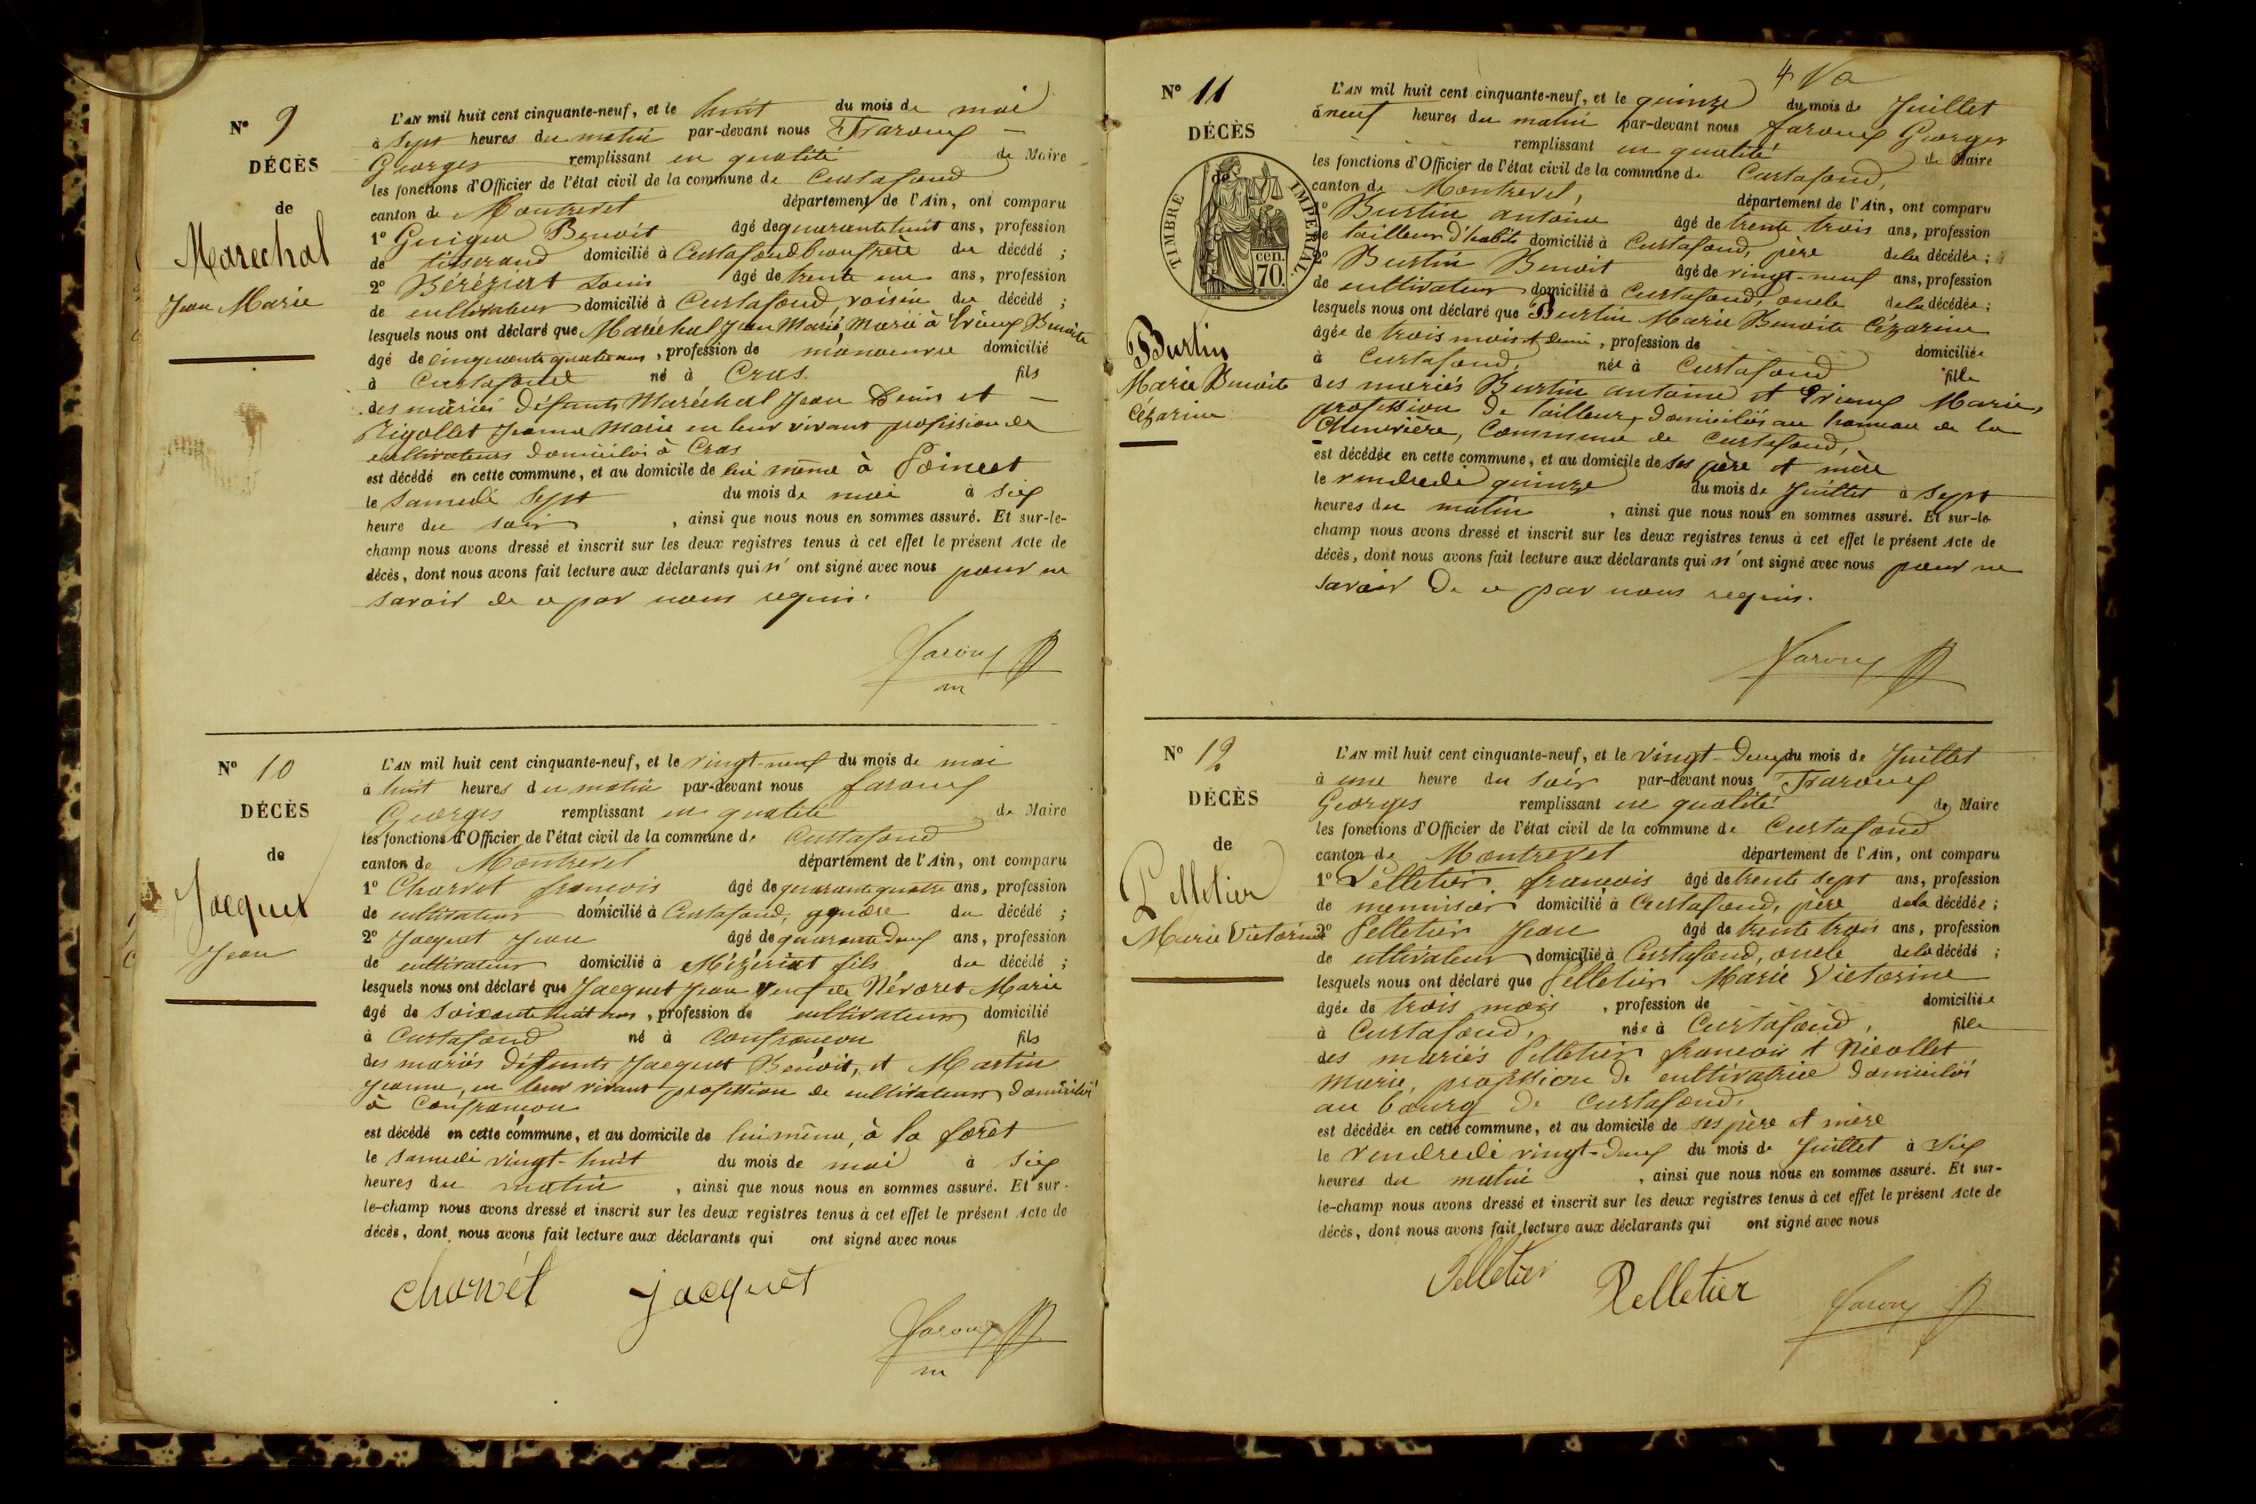 N° 9
DÉCÈS
de
Marechal
Jean Marie
L'AN mil huit cent cinquante-neuf, et le huit du mois de mai
à sept heures du matin par-devant nous
Georges remplissant en qualité de Maire
les fonctions d'Officier de l'état civil de la commune de Curtafond
canton de Montrevel département de l'Ain, ont comparu
1° Benoit âgé de quarante huit ans, profession
de tisserand domicilié à Curtafond beaufrère du décédé ;
2° Béréziat Louis âgé de trente un ans, profession
de cultivateur domicilié à Curtafond, voisin du décédé ;
lesquels nous ont déclaré que Maréchal Jean Marie, Marié à Benoite
âgé de cinquante quatre ans, profession de manoeuvre domicilié
à Curtafond né à Cras fils
des mariés défunts Maréchal Jean Denis et
Rigollet Jeanne Marie en leur vivant profession de
cultivateurs domiciliés à Cras
est décédé en cette commune, et au domicile de lui même à
le samedi sept du mois de mai à six
heure du soir, ainsi que nous nous en sommes assuré. Et sur-le-
champ nous avons dressé et inscrit sur les deux registres tenus à cet effet le présent Acte de
décès, dont nous avons fait lecture aux déclarants qui n' ont signé avec nous pour ne
savoir de ce par nous requis.
N° 10
DÉCÈS
de
Jacquet
Jean
L'AN mil huit cent cinquante-neuf, et le vingt-neuf du mois de mai
à huit heures du matin par-devant nous
Georges remplissant en qualité de Maire
les fonctions d'Officier de l'état civil de la commune de Curtafond
canton de Montrevel département de l'Ain, ont comparu
1° Charvet françois âgé de quarante quatre ans, profession
de cultivateur domicilié à Curtafond, gendre du décédé ;
2° Jacquet Jean âgé de quarante deux ans, profession
de cultivateur domicilié à Mézériat fils du décédé ;
lesquels nous ont déclaré que Jacquet Jean veuf de Névoret Marie
âgé de soixante huit ans, profession de cultivateur domicilié
à Curtafond né à Confrançon fils
des mariés défunts Jacquet Benoit, et Martin
Jeanne, en leur vivant profession de cultivateurs domiciliés
à Confrançon
est décédé en cette commune, et au domicile de lui même, à la forêt
le samedi vingt-huit du mois de mai à six
heures du matin, ainsi que nous nous en sommes assuré. Et sur-
le-champ nous avons dressé et inscrit sur les deux registres tenus à cet effet le présent Acte de
décès, dont nous avons fait lecture aux déclarants qui ont signé avec nous
charvét Jacquet
4
N° 11
DÉCÈS
de
TIMBRE IMPERIAL
70 cen.
Burtin
Marie Benoite
Cézarine
L'AN mil huit cent cinquante-neuf, et le quinze du mois de Juillet
à neuf heures du matin par-devant nous Georges
remplissant en qualité de Maire
les fonctions d'Officier de l'état civil de la commune de Curtafond,
canton de Montrevel, département de l'Ain, ont comparu
1° Burtin antoine âgé de trente trois ans, profession
de tailleur d'habits domicilié à Curtafond, père de la décédée ;
2° Burtin Benoit âgé de vingt-neuf ans, profession
de cultivateur domicilié à Curtafond, oncle de la décédée ;
lesquels nous ont déclaré que Burtin Marie Benoite Cézarine
âgée de trois mois et demi, profession de domiciliée
à Curtafond, née à Curtafond fille
des mariés Burtin antoine et Marie,
profession de tailleur, domiciliés au hameau de la
Chenevière, Commune de Curtafond,
est décédée en cette commune, et au domicile de ses père et mère
le vendredi quinze du mois de Juillet à sept
heures du matin, ainsi que nous nous en sommes assuré. Et sur-le-
champ nous avons dressé et inscrit sur les deux registres tenus à cet effet le présent Acte de
décès, dont nous avons fait lecture aux déclarants qui n' ont signé avec nous pour ne
savoir de ce par nous requis.
N° 12
DÉCÈS
de
Pelletier
Marie Victorine
L'AN mil huit cent cinquante-neuf, et le vingt-deux du mois de Juillet
à une heure du soir par-devant nous
Georges remplissant en qualité de Maire
les fonctions d'Officier de l'état civil de la commune de Curtafond
canton de Montrevel département de l'Ain, ont comparu
1° Pelletier françois âgé de trente sept ans, profession
de menuisier domicilié à Curtafond, père de la décédée ;
2° Pelletier Jean âgé de trente trois ans, profession
de cultivateur domicilié à Curtafond, oncle de la décédé ;
lesquels nous ont déclaré que Pelletier Marie Victorine
âgée de trois mois, profession de domiciliée
à Curtafond, née à Curtafond, fille
des mariés Pelletier françois et Nicollet
Marie, profession de cultivatrice domiciliés
au bourg de Curtafond,
est décédée en cette commune, et au domicile de ses père et mère
le vendredi vingt-deux du mois de Juillet à six
heures du matin, ainsi que nous nous en sommes assuré. Et sur-
le-champ nous avons dressé et inscrit sur les deux registres tenus à cet effet le présent Acte de
décès, dont nous avons fait lecture aux déclarants qui ont signé avec nous
Pelletier Pelletier